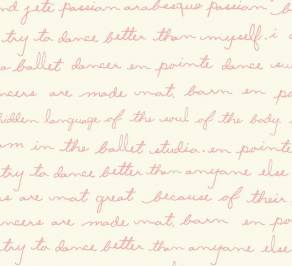 nd jeté passion arabesque passion b
try to dance better than myself. i
a ballet dancer en pointe dance
ncers are made not, born en po
hidden language of the soul of the body
rm in the ballet studio. en pointe
try to dance better than anyone else
s are not great because of their
ncers are made not, born en po
try to dance better than anyone else